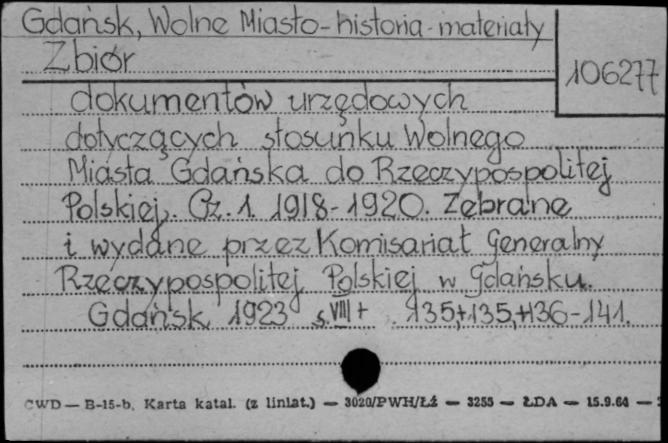 Gdańsk, Wolne Miasto - historia - materiały
Zbiór
106277
dokumentów urzędowych
dotyczących stosunku Wolnego
Miasta Gdańska do Rzeczypospolitej
Polskiej. Cz. 1. 1918-1920. Zebrane
i wydane przez Komisariat Generalny
Rzeczypospolitej Polskiej w Gdańsku.
Gdańsk 1923 s. VIII + 135,+135,+136-141.
CWD — B-15-b. Karta katal. (z liniat.) — 3020/PWH/Łź — 3255 — ŁDA — 15.9.64 —